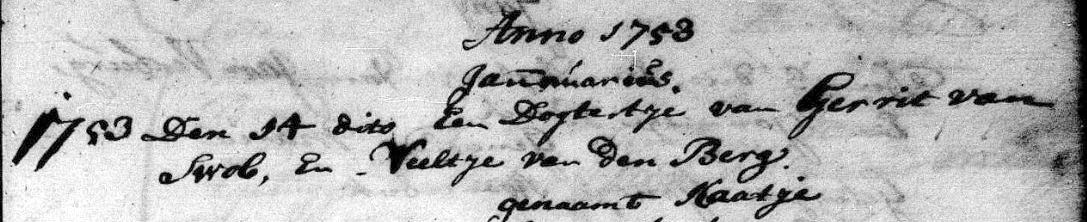 Anno 1753
Jannuarius.
1753 Den 14 dito Een Dogtertje van Gerrit van
Swob, En Neeltje van den Berg.
genaamt Kaatje